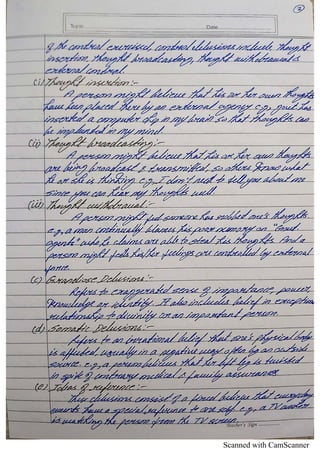 3
Topic
Date
of the control exercised, control delusions include thought
insertion, thought broadcasting, thought withdrawal &
external control.
(i) Thought insertion:-
A person might believe that his or her own thoughts
have been placed there by an external agency e.g.,
inserted a computer chip in my brain so that thoughts can
be implanted in my mind.
(ii) Thought broadcasting:-
A person might believe that his or her own thoughts
are being broadcast & transmitted, so others know what
he or she is thinking e.g., I don't need to tell you about me
since you can hear my thoughts well.
(iii) Thought withdrawal:-
A person might feel someone has robbed one's thoughts
e.g., a man continually blames his poor memory on
agents" who he claims are able to steal his thoughts. And a
person might feels his/her feelings are controlled by external
force.
(c) Grandiose Delusions:-
Refers to exaggerated sense of importance, power,
knowledge or identity. It also includes belief in exceptional
relationship to divinity or an important person.
(d) Somatic Delusions:-
Refers to an irrational belief that one's physical body
is affected, usually in a negative way often by an outside
source e.g., a person believes that her left leg is twisted
in spite of contrary medical & family assurance.
(e) Ideas of reference:-
They delusions consist of a forced believe that everyday
events have a special reference to one self e.g., a TV
is watching the person from the TV screen.
Teacher's Sign
Scanned with CamScanner